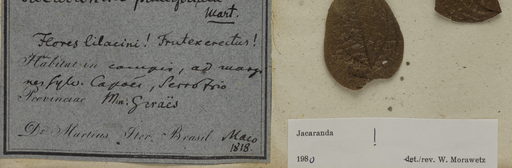 Mart.
Flores lilacini! Frutex erectus!
Habitat in campis, ad marg.
nes sylv. Capões, Serro frio
Provinciae Ms. Geraës
Dr. Martius Iter Brasil. Maeo
1818.
Jacaranda
1980 det./rev. W. Morawetz